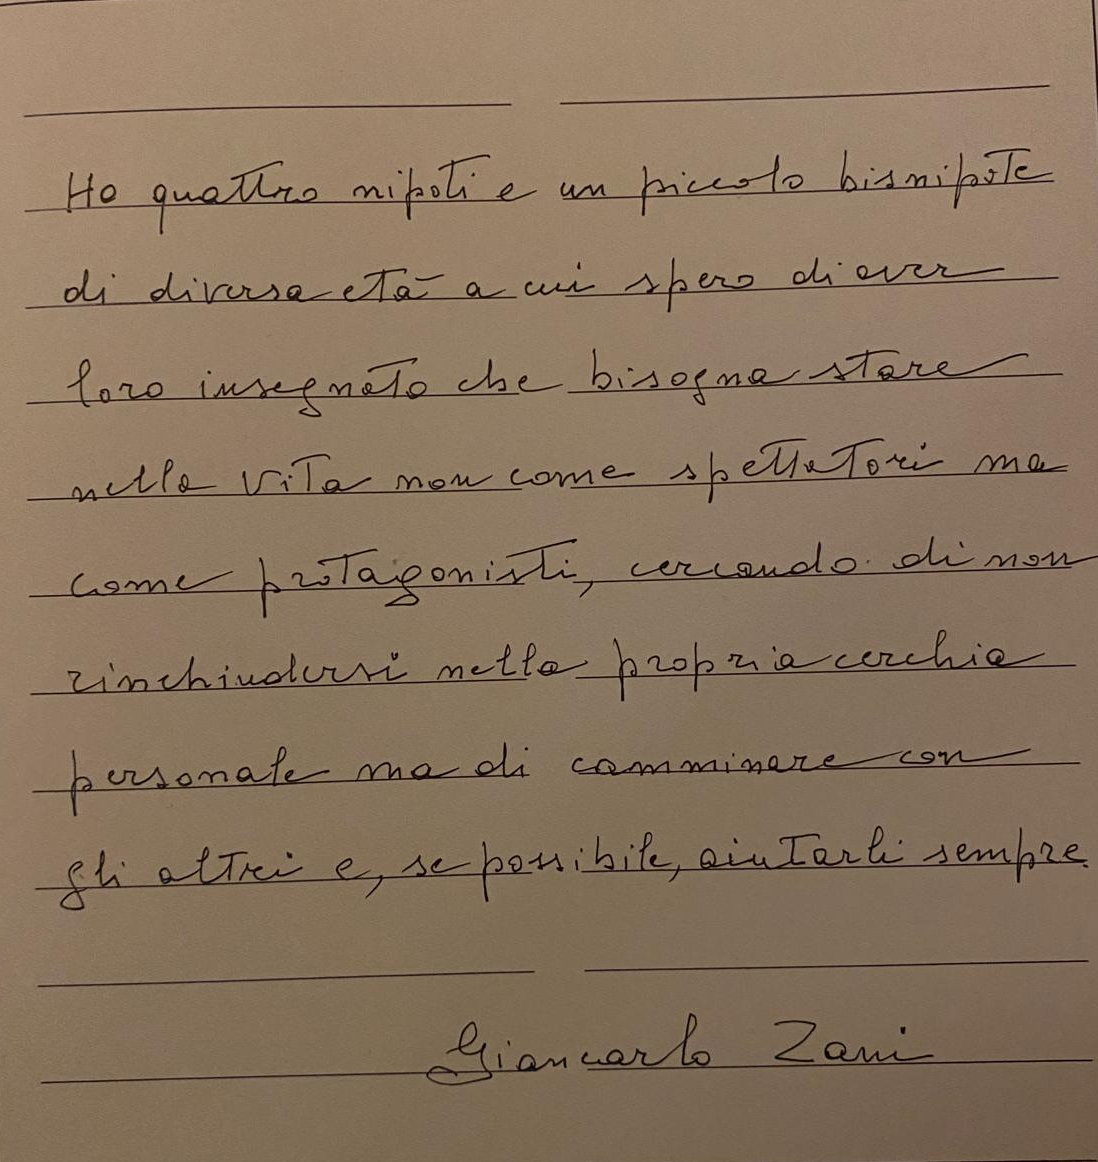 Ho quattro nipoti e un piccolo bisnipote
di diversa età a cui spero di aver
loro insegnato che bisogna stare
nella vita non come spettatori ma
come protagonisti, cercando di non
rinchiudersi nella propria cerchia
personale ma di camminare con
gli altri e, se possibile, aiutarli sempre.
Giancarlo Zani